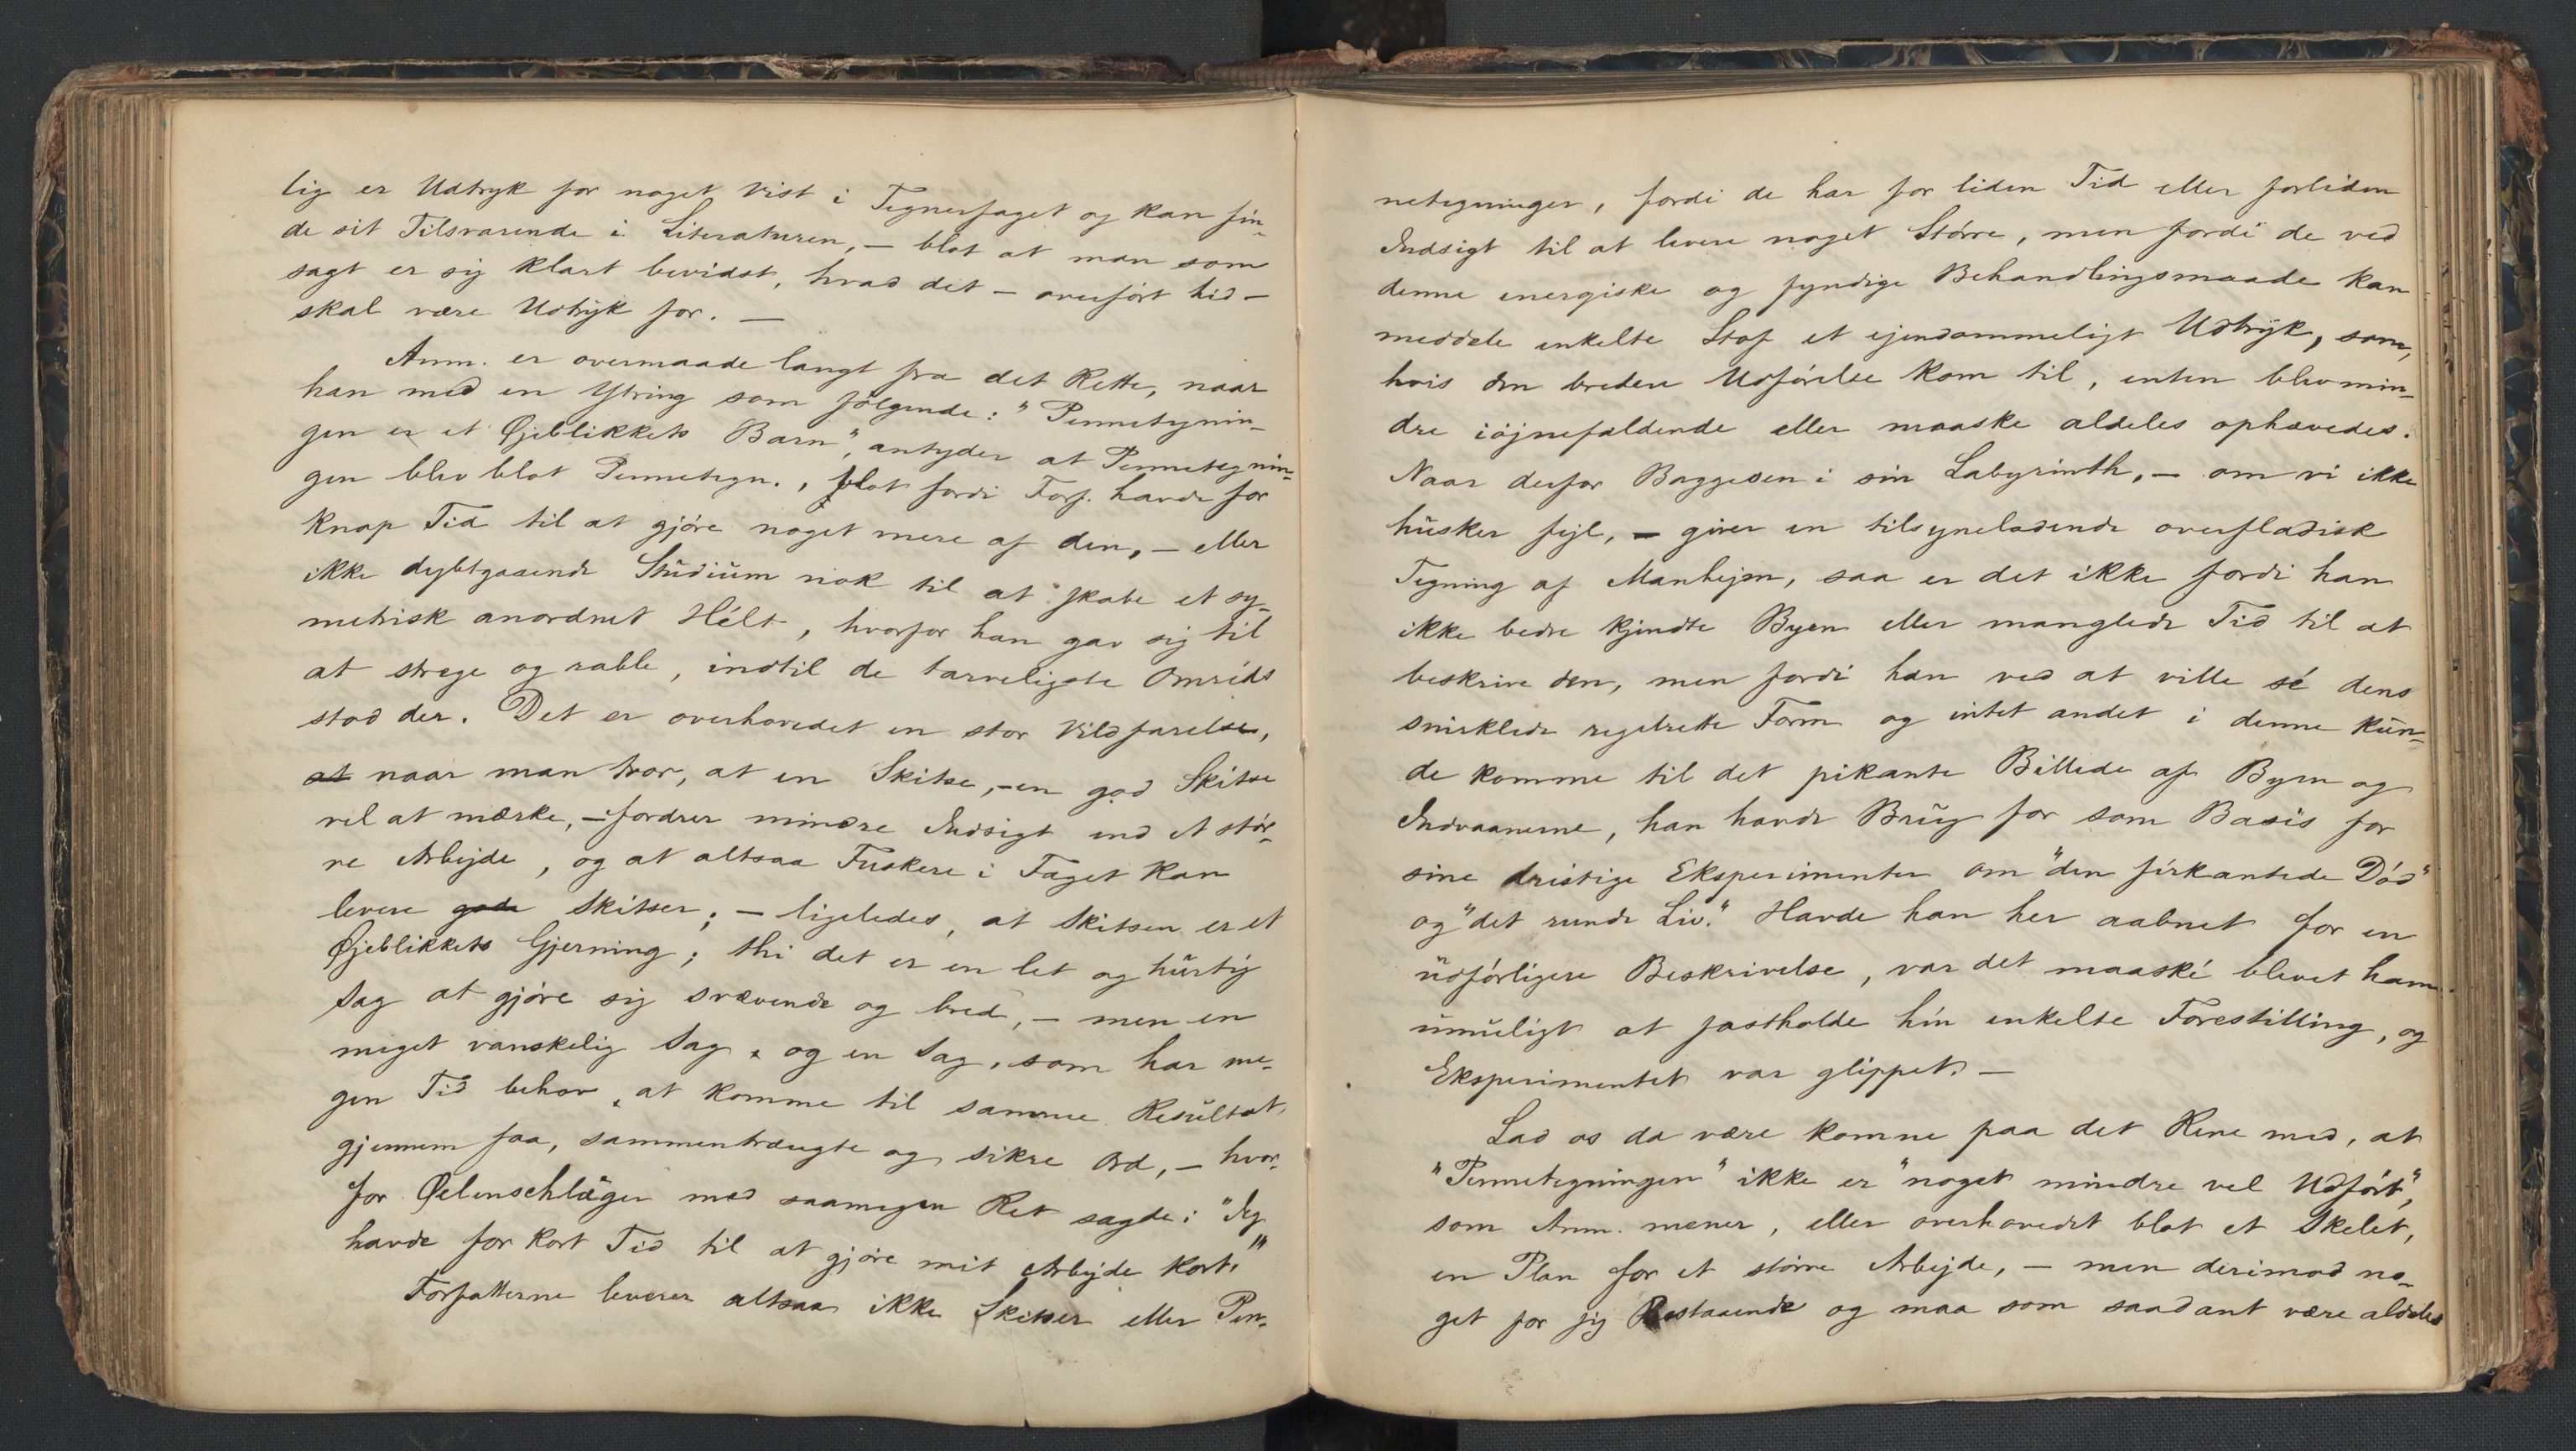 lig er Udtryk for noget vist i Tegnerfaget og kan fin-
de sit Tilsvarende i Literaturen, — blot at man som
sagt er sig klart bevidst, hvad det — overfört hid —
skal være Udtryk for. —
Anm. er overmaade langt fra det Rette, naar
han med en Ytring som fölgende: "Pennetegnin-
gen er et Øjeblikkets Barn", antyder at Pennetegnin-
gen blev blot Pennetegn., blot fordi Forf. havde for
knap Tid til at gjöre noget mere af den, — eller
ikke dybtgaaende Studium nok til at skabe et sy-
metrisk anordnet Hélt, hvorfor han gav sig til
at strege og rable, indtil de tarveligste Omrids
stod der. Det er overhovedet en stor Vildfarelse,
at naar man tror, at en Skitse, — en god Skitse
vel at mærke, — fordrer mindre Indsigt end et stör-
re Arbejde, og at altsaa Fuskere i Faget kan
levere gode Skitser; — ligeledes, at Skitsen er et
Øjeblikkets Gjerning; thi det er en let og hurtig
Sag at gjöre sig svævende og bred, — men en
meget vanskelig Sag, og en Sag, som har me-
gen Tid behov, at komme til samme Resultat
gjennem faa, sammentrængte og sikre Ord, — hvor-
for Øelenschläger med saamegen Ret sagde: "Jeg
havde for kort Tid til at gjöre mit Arbejde kort."
Forfatterne leverer altsaa ikke Skitser eller Pen-
netegninger, fordi de har for liden Tid eller forliden
Indsigt til at levere noget Större, men fordi de ved
denne energiske og fyndige Behandlingsmaade kan
meddele enkelte Stof et ejendommeligt Udtryk, som,
hvis den bredere Udförelse kom til, enten blev min-
dre iöjnefaldende eller maaske aldeles ophævedes.
Naar derfor Baggesen i sin Labyrinth, — om vi ikke
husker fejl, — giver en tilsyneladende overfladisk
Tegning af Manhejm, saa er det ikke fordi han
ikke bedre kjendte Byen eller manglede Tid til at
beskrive den, men fordi han ved at ville sé dens
snirklede regelrette Form og intet andet i denne kun-
de komme til det pikante Billede af Byen og
Indvaanerne, han havde Brug for som Basis for
sine dristige Eksperimenter om "den firkantede Död"
og "det runde Liv." Havde han her aabnet for en
udförligere Beskrivelse, var det maaské blevet ham
umuligt at fastholde hin enkelte Forestilling, og
Eksperimentet var glippet. —
Lad os da være komne paa det Rene med, at
"Pennetegningen" ikke er "noget mindre vel Udfört",
som Anm. mener, eller overhovedet blot et Skelet,
en Plan for et större Arbejde, — men derimod no-
get for sig Bestaaende og maa som saadant være aldeles